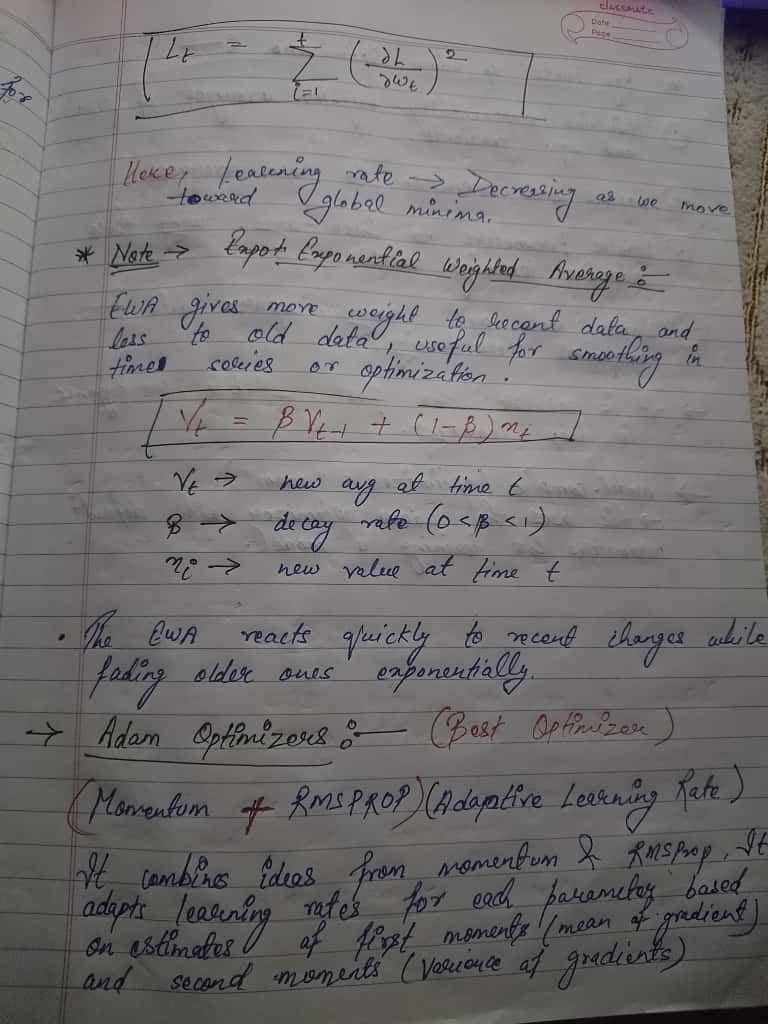 classmate
Date
Page
for
L_t = Σ_{i=1}^{t} (∂L/∂w_t)^2
Here, Learning rate → Decreasing as we move
toward global minima.
* Note → Expot Exponential Weighted Average :-
EWA gives more weight to recent data and
less to old data, useful for smoothing in
time series or optimization.
V_t = β V_{t-1} + (1-β) x_t
V_t → new avg at time t
β → decay rate (0<β<1)
x_i → new value at time t
• The EWA reacts quickly to recent changes while
fading older ones exponentially.
→ Adam Optimizers :- (Best Optimizer)
(Momentum + RMSPROP) (Adaptive Learning Rate)
It combines ideas from momentum & RMSProp. It
adapts learning rates for each parameter based
on estimates of first moments (mean of gradient)
and second moments (variance of gradients)